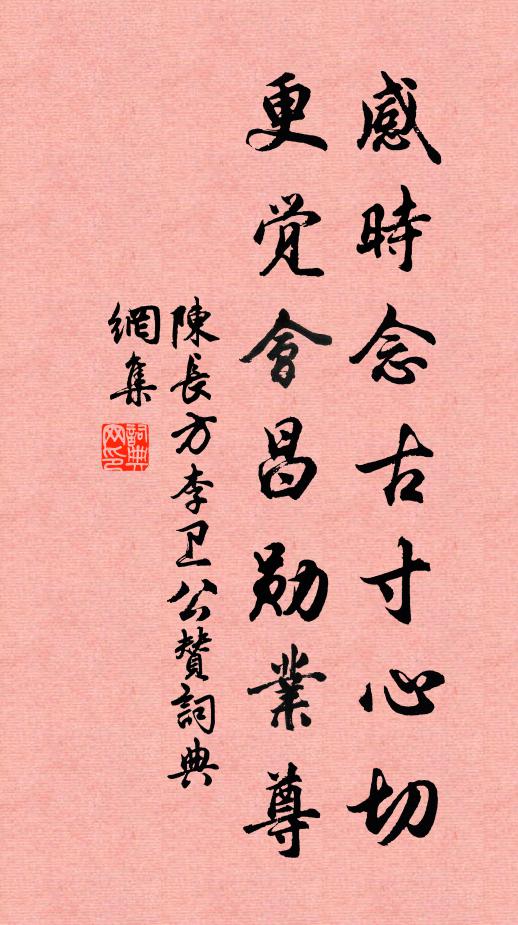 感時念古寸心切
更觉會昌勋業尊
陳長方李卫公贊詞典
網集
詞典
网印